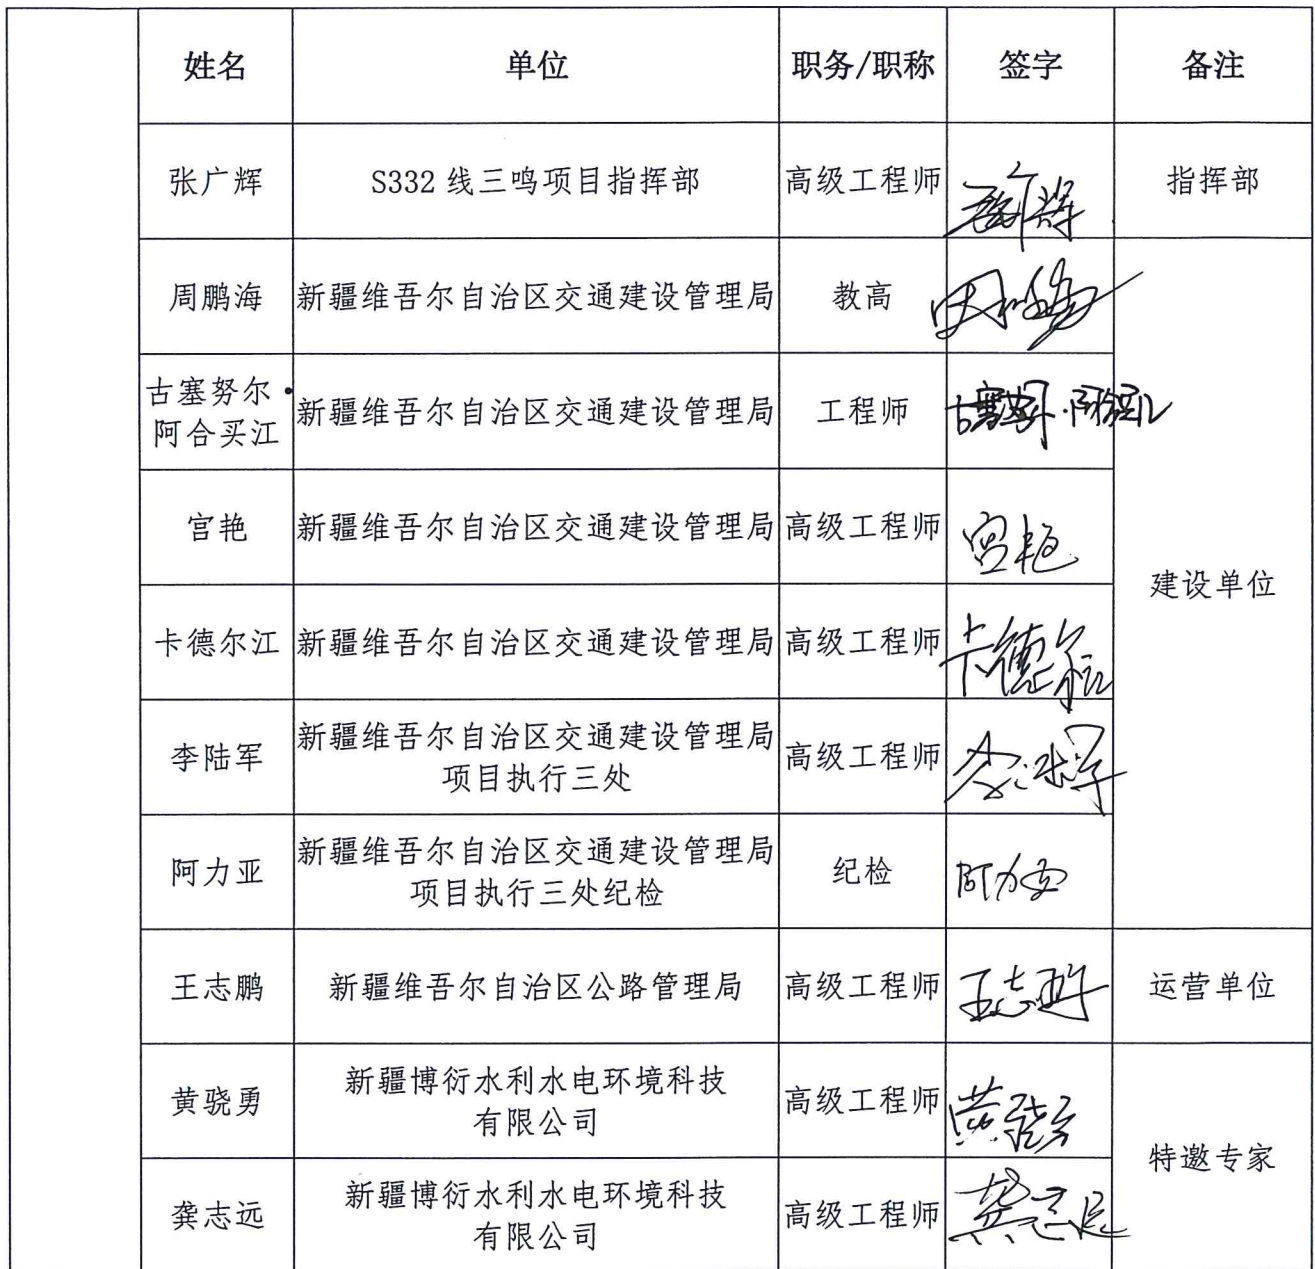 姓名 单位 职务/职称 签字 备注
张广辉 S332 线三鸣项目指挥部 高级工程师 指挥部
周鹏海 新疆维吾尔自治区交通建设管理局 教高
古塞努尔·
阿合买江 新疆维吾尔自治区交通建设管理局 工程师 古塞努尔·阿合买江
宫艳 新疆维吾尔自治区交通建设管理局 高级工程师 宫艳
建设单位
卡德尔江 新疆维吾尔自治区交通建设管理局 高级工程师 卡德尔江
李陆军 新疆维吾尔自治区交通建设管理局
项目执行三处 高级工程师
阿力亚 新疆维吾尔自治区交通建设管理局
项目执行三处纪检 纪检 阿力亚
王志鹏 新疆维吾尔自治区公路管理局 高级工程师 王志鹏 运营单位
黄骁勇 新疆博衍水利水电环境科技
有限公司 高级工程师 黄骁勇
特邀专家
龚志远 新疆博衍水利水电环境科技
有限公司 高级工程师 龚志远